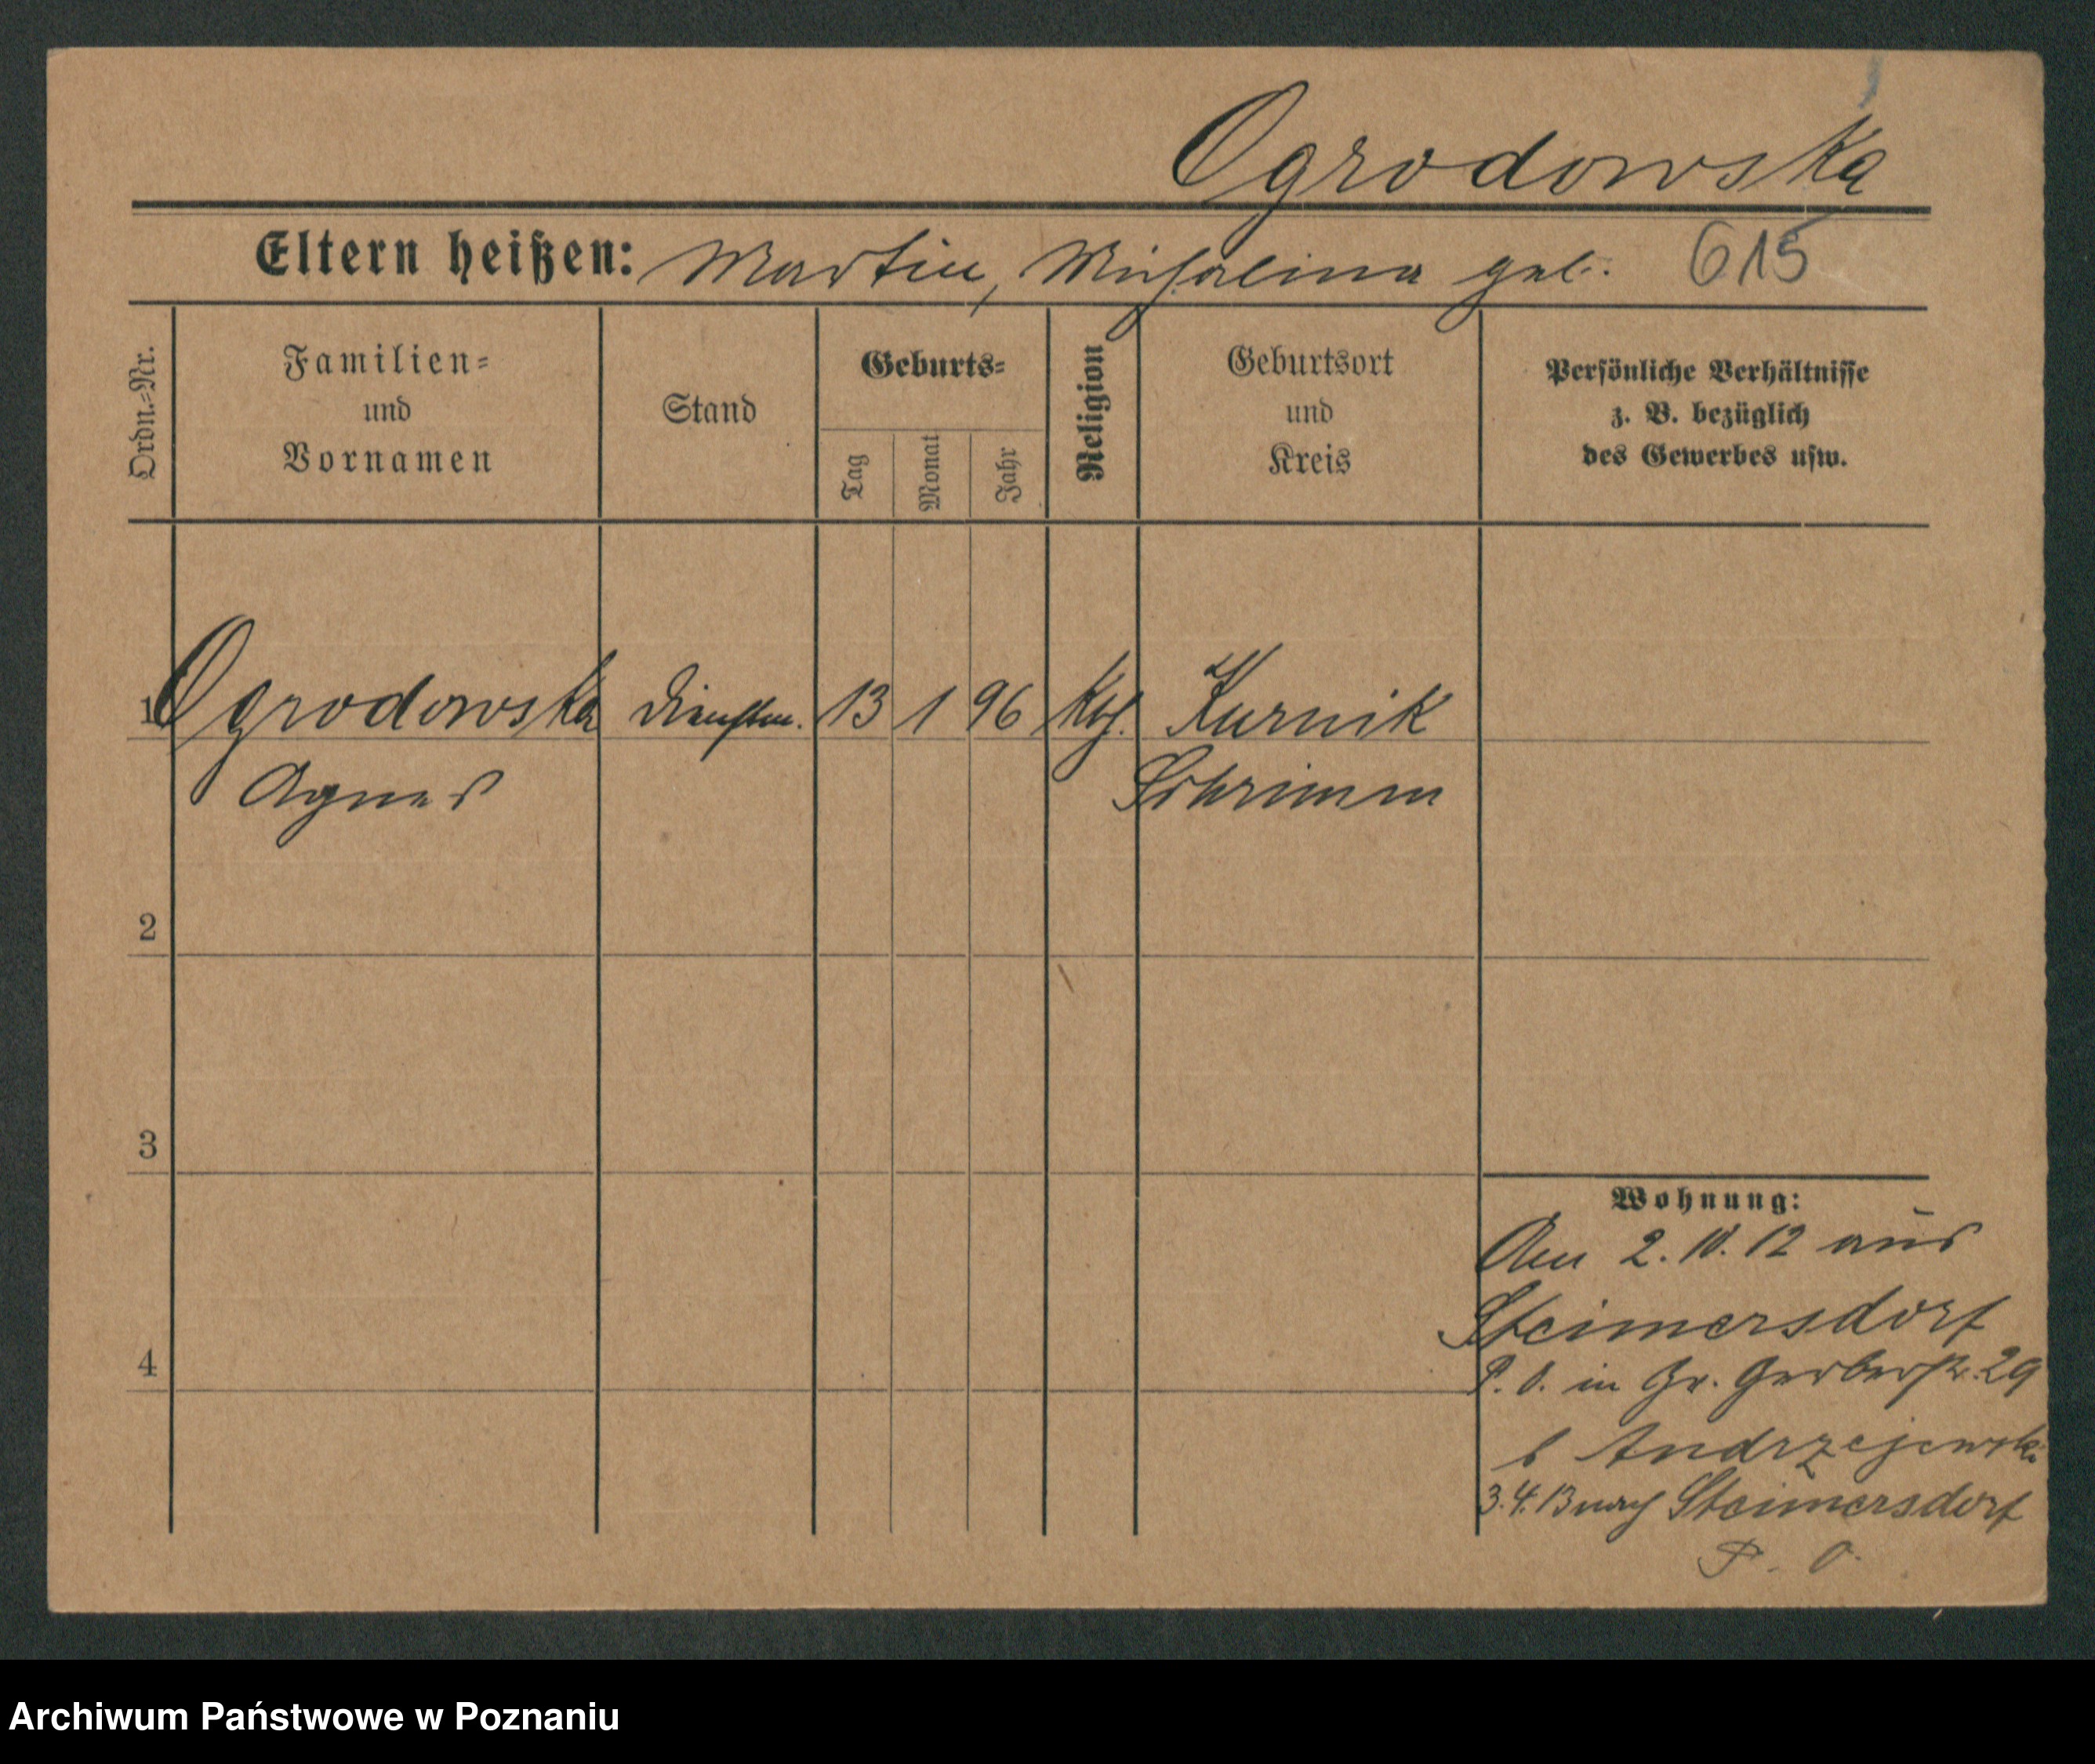 Ogrodowska
Eltern heißen: Martin, Michalina geb. 615
Ordn.-Nr.
Familien-
und
Vornamen
Stand
Geburts-
Tag
Monat
Jahr
Religion
Geburtsort
und
Kreis
Persönliche Verhältnisse
z. B. bezüglich
des Gewerbes usw.
1 Ogrodowska Dienstm. 13 1 96 Kth. Kurnik
Agnes Schrimm
2
3
Wohnung:
Am 2.10.12 aus
Steimersdorf
4
P. O. in Gr. Gerberstr. 29
b Andrzejewski
3.4.13 nach Steimersdorf
P. O.
Archiwum Państwowe w Poznaniu